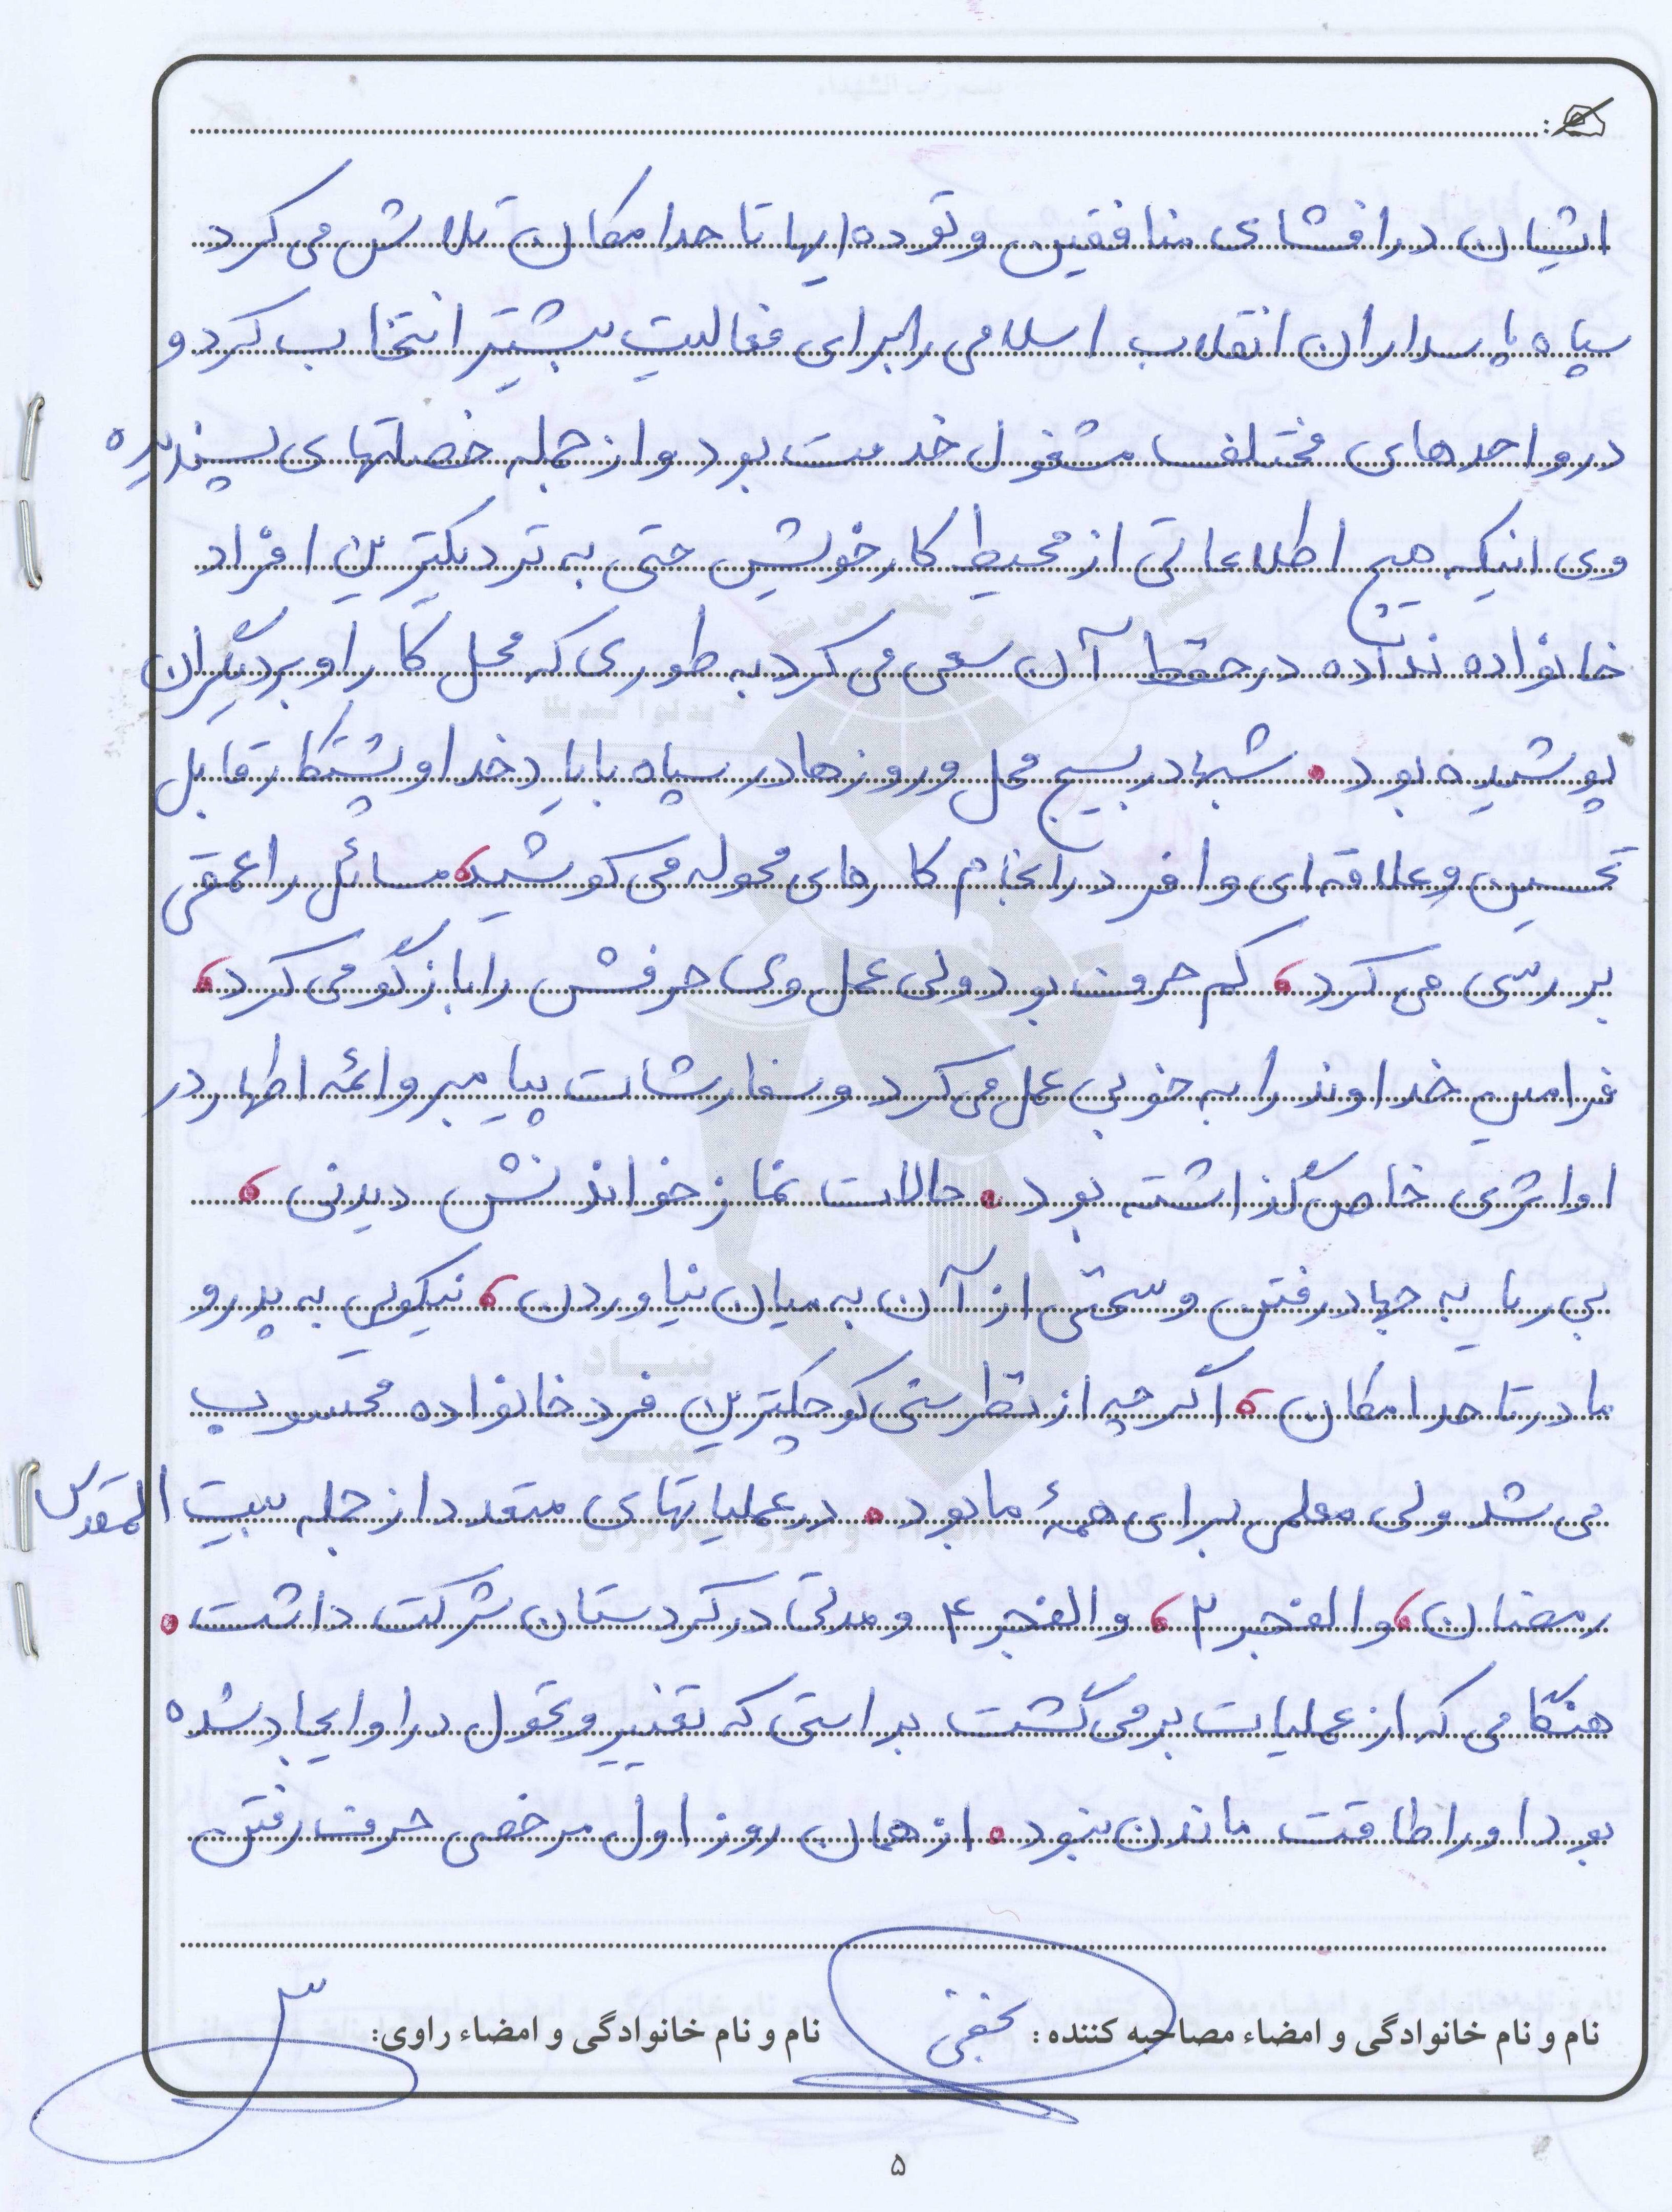 ایشان در افشای منافقین و توده ایها تا حد امکان تلاش می کرد
سپاه پاسداران انقلاب اسلامی را برای فعالیت بیشتر انتخاب کرد و
در واحدهای مختلف مشغول خدمت بود و از جمله خصلتهای پسندیده
وی اینکه هیچ اطلاعاتی از محیط کار خویش حتی به نزدیکترین افراد
خانواده نداده در حفظ آن سعی می کرد به طوری که محل کار او بر دیگران
پوشیده بود. شبها در بسیج محل و روزها در سپاه با یاد خدا و پشتکار قابل
تحسین و علاقه ای وافر در انجام کارهای محوله می کوشید، مسائل را عمقی
بررسی می کرد، کم حرف بود ولی عمل وی حرفش را بازگو می کرد،
فرامین خداوند را به خوبی عمل می کرد و سفارشات پیامبر و ائمه اطهار در
او اثری خاص گذاشته بود. حالات نماز خواندنش دیدنی،
بی ریا به جهاد رفتن و سخنی از آن به میان نیاوردن، نیکویی به پدر و
مادر تا حد امکان، اگر چه از نظر سنی کوچکترین فرد خانواده محسوب
می شد ولی معلمی برای همهٔ ما بود. در عملیاتهای متعدد از جمله بیت المقدس
رمضان، والفجر ۲، والفجر ۴ و مدتی در کردستان شرکت داشت.
هنگامی که از عملیات برمی گشت براستی که تغییر و تحول در او ایجاد شده
بود او را طاقت ماندن نبود. از همان روز اول مرخصی حرف رفتن
نام و نام خانوادگی و امضاء مصاحبه کننده: نام و نام خانوادگی و امضاء راوی:
۵